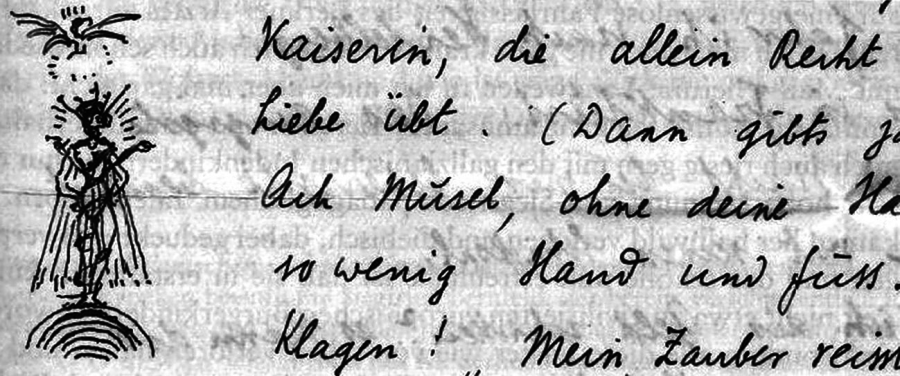 Kaiserin, die allein Recht
Liebe übt. (Dann gibts
Ach Musel, ohne deine
so wenig Hand und Fuss.
Klagen! Mein Zauber